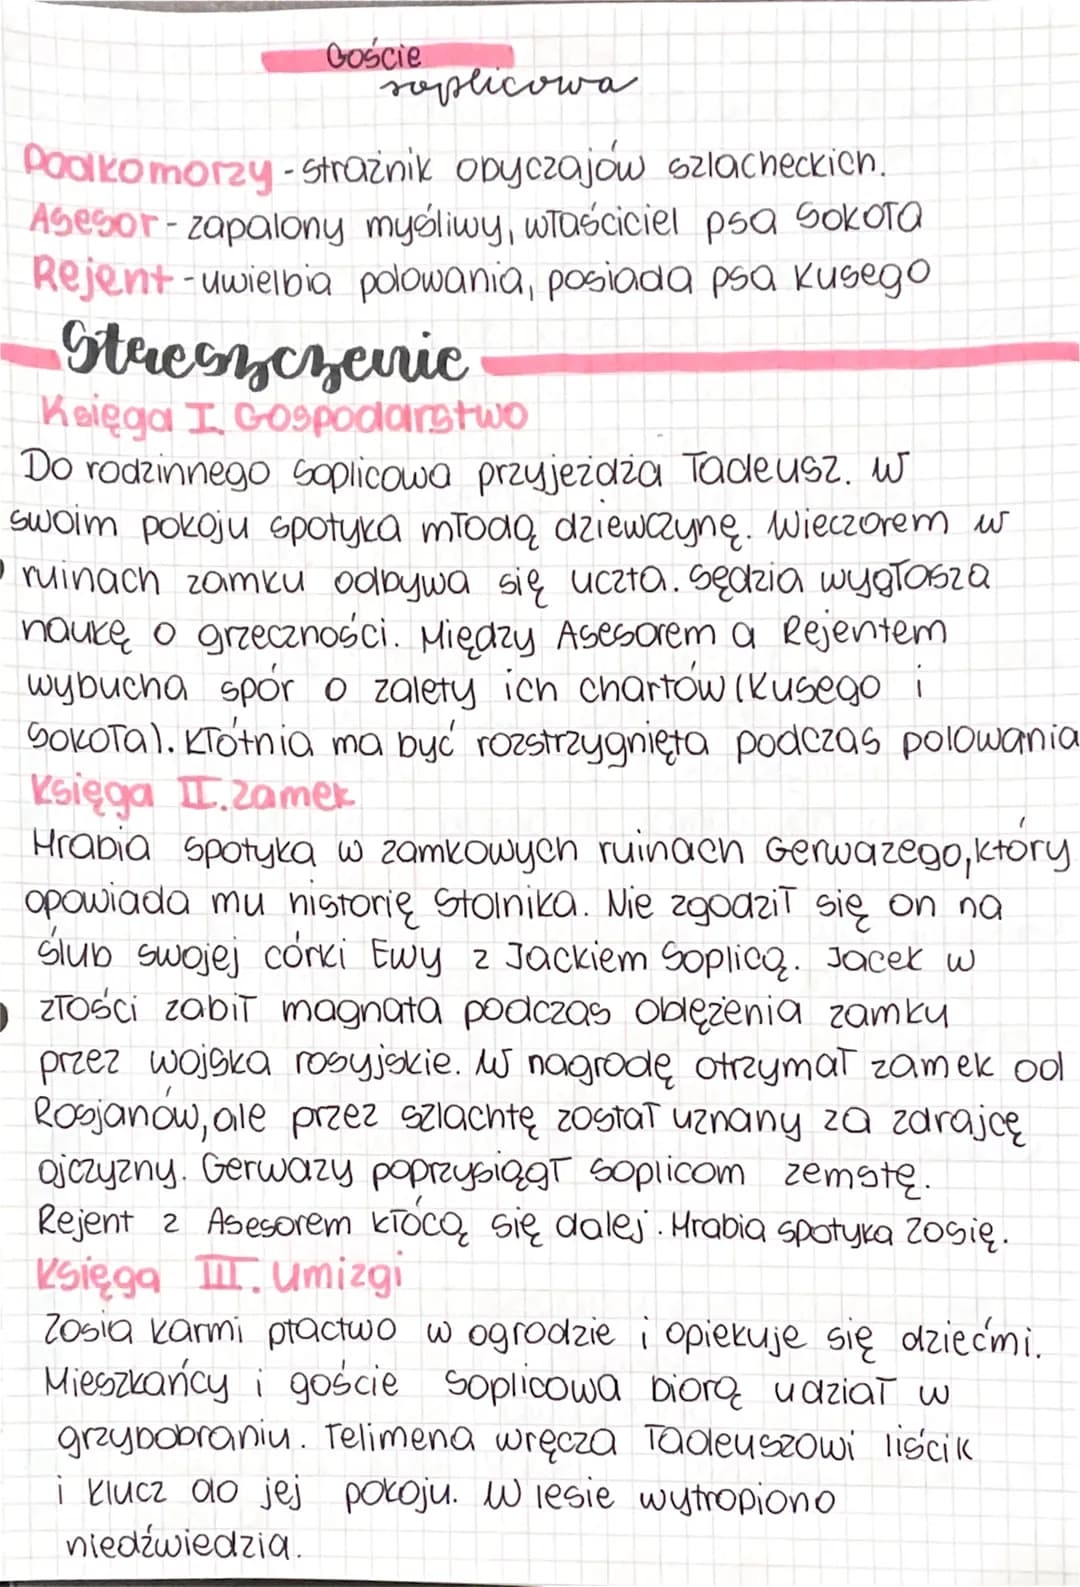 Goście
soplicowa
Podkomorzy - strażnik obyczajów szlacheckich.
Asesor - zapalony myśliwy, właściciel psa Sokoła
Rejent - uwielbia polowania, posiada psa Kusego
Streszczenie
Księga I. Gospodarstwo
Do rodzinnego Soplicowa przyjeżdża Tadeusz. W
swoim pokoju spotyka młodą dziewczynę. Wieczorem w
ruinach zamku odbywa się uczta. Sędzia wygłasza
naukę o grzeczności. Między Asesorem a Rejentem
wybucha spór o zalety ich chartów (Kusego i
Sokoła). Kłótnia ma być rozstrzygnięta podczas polowania
Księga II. Zamek
Hrabia spotyka w zamkowych ruinach Gerwazego, który
opowiada mu historię Stolnika. Nie zgodził się on na
ślub swojej córki Ewy z Jackiem Soplicą. Jacek w
złości zabił magnata podczas oblężenia zamku
przez wojska rosyjskie. W nagrodę otrzymał zamek od
Rosjanów, ale przez szlachtę został uznany za zdrajcę
ojczyzny. Gerwazy poprzysiągł Soplicom zemstę.
Rejent z Asesorem kłócą się dalej. Hrabia spotyka Zosię.
Księga III. Umizgi
Zosia karmi ptactwo w ogrodzie i opiekuje się dziećmi.
Mieszkańcy i goście Soplicowa biorą udział w
grzybobraniu. Telimena wręcza Tadeuszowi liścik
i klucz do jej pokoju. W lesie wytropiono
niedźwiedzia.